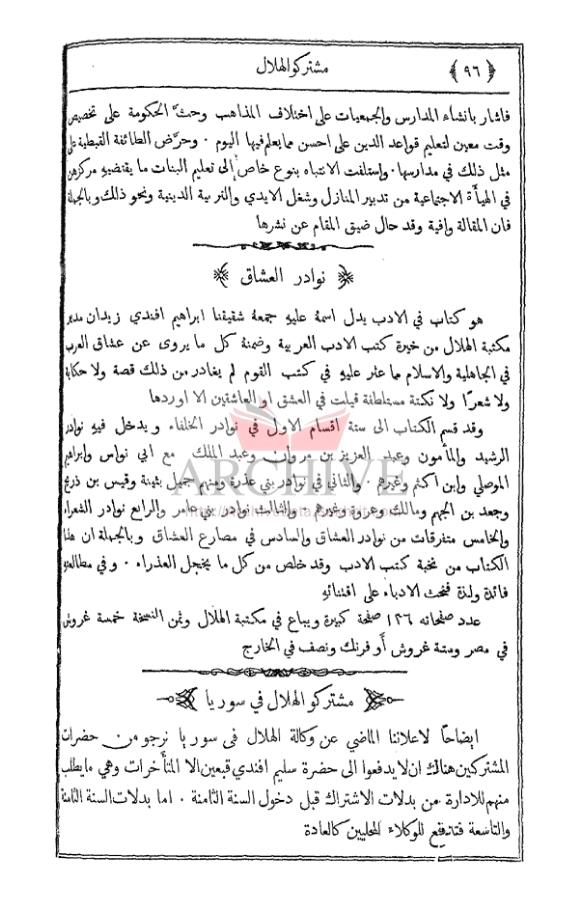 ﴿ ٩٦ ﴾ مشتركو الهلال
فاشار بانشاء المدارس والجمعيات على اختلاف المذاهب وحثَّ الحكومة على تخصيص
وقت معين لتعليم قواعد الدين على احسن مما يعلم فيها اليوم . وحرَّض الطائفة القبطية على
مثل ذلك في مدارسها . واستلفت الانتباه بنوع خاص الى تعليم البنات ما يقتضيه مركزهن
في الهيأة الاجتماعية من تدبير المنازل وشغل الايدي والتربية الدينية ونحو ذلك وبالجملة
فان المقالة وافية وقد حال ضيق المقام عن نشرها
نوادر العشاق
هو كتاب في الادب يدل اسمهُ عليه جمعهُ شقيقنا ابراهيم افندي زيدان مدير
مكتبة الهلال من خيرة كتب الادب العربية وضمنهُ كل ما يروى عن عشاق العرب
في الجاهلية والاسلام مما عثر عليه في كتب القوم لم يغادر من ذلك قصة ولا حكاية
ولا شعرًا ولا نكتة مستلطفة قيلت في العشق او العاشقين الا اوردها
وقد قسم الكتاب الى ستة اقسام الاول في نوادر الخلفاء ويدخل فيه نوادر
الرشيد والمأمون وعبد العزيز بن مروان وعبد الملك مع ابي نواس وابراهيم
الموصلي وابن اكثم وغيرهم . والثاني في نوادر بني عذرة ومنهم جميل بثينة وقيس بن ذريح
وجعد بن الجهم ومالك وعروة وغيرهم . والثالث نوادر بني عامر والرابع نوادر الشعراء
والخامس متفرقات من نوادر العشاق والسادس في مصارع العشاق وبالجملة ان هذا
الكتاب من نخبة كتب الادب وقد خلص من كل ما يخجل العذراء . وفي مطالعته
فائدة ولذة فنحث الادباء على اقتنائه
عدد صفحاته ١٣٦ صفحة كبيرة ويباع في مكتبة الهلال وثمن النسخة خمسة غروش
في مصر وستة غروش أو فرنك ونصف في الخارج
مشتركو الهلال في سوريا
ايضاحًا لاعلاننا الماضي عن وكالة الهلال في سوريا نرجو من حضرات
المشتركين هناك ان لا يدفعوا الى حضرة سليم افندي قبعين الا المتأخرات وهي ما يطلب
منهم للادارة من بدلات الاشتراك قبل دخول السنة الثامنة . اما بدلات السنة الثامنة
والتاسعة فتدفع للوكلاء المحليين كالعادة
ARCHIVE